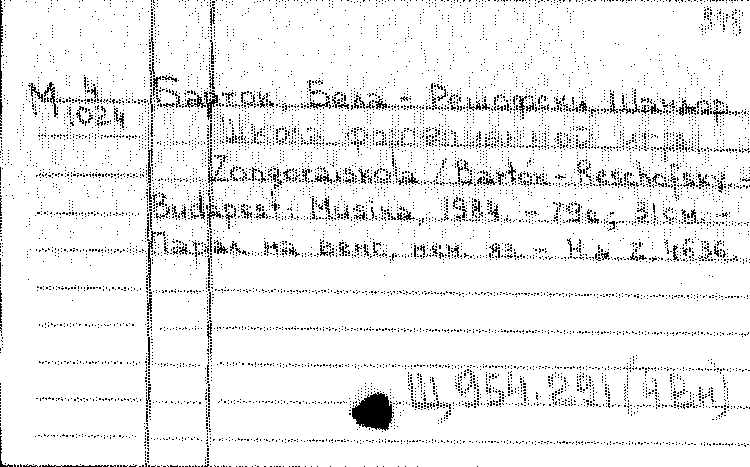 348
М 4/1024
Барток, Бела - Решофски, Шандор
Школа фортепианной игры
Zongoraiskola / Bartók - Reschofsky -
Budapest: Musica, 1984. - 79с.; 31см. -
Парал. на венг., нем. яз. - Н.д. Z. 4636.
Щ 954.291 (4Вн)